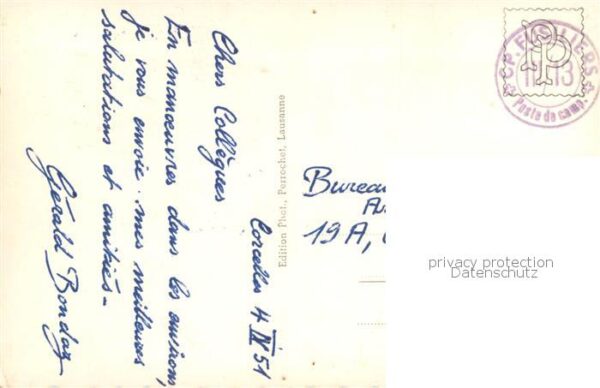 Corcelles 4 IX 51
Chers Collègues
En manœuvres dans les environs,
je vous envoie mes meilleures
salutations et amitiés -
Gérald Bondaz
Edition Phot., Perrochet, Lausanne
Bureau
19 A,
CP FUSILIERS
II 13
Poste de camp.
PP
privacy protection
Datenschutz